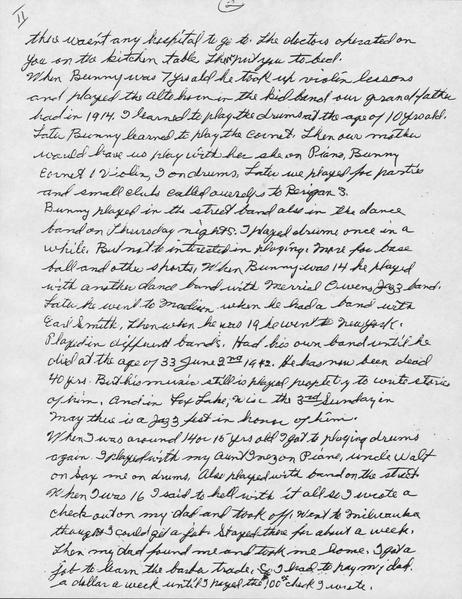 II
there wasn't any hospital to go to. The doctors operated on
you on the kitchen table then put you to bed.
When Bunny was 7 yrs old he took up violin lessons
and played the Alto horn in the kid band our grandfather
had in 1914. I learned to play the drums at the age of 10 yrs old.
Later Bunny learned to play the cornet. Then our mother
would have us play with her she on Piano, Bunny
Cornet & Violin, I on drums. Later we played for parties
and small clubs called ourselfs to Berigan 3.
Bunny played in the street band also in the dance
band on Thursday nights. I played drums once in a
while. But not to intrested in playing. More for base
ball and other sports. When Bunny was 14 he played
with another dance band with Merrial Owens Jazz band.
Later he went to Madison when he had a band with
Earl Smith. Then when he was 19 he went to New York.
Played in different bands. Had his own band until he
died at the age of 33 June 2nd 1942. He has now been dead
40 yrs. But his music still is played people try to write stories
of him. And in Fox Lake, Wis the 3rd Sunday in
May there is a Jazz fest in honor of him.
When I was around 14 or 15 yrs old I got to playing drums
again. I played with my Aunt Inez on Piano, uncle Walt
on Sax me on drums. Also played with band on the street
When I was 16 I said to hell with it all so I wrote a
check out on my dad and took off. Went to Milwaukee
thought I could get a job. Stayed there for about a week.
Then my dad found me and took me home. I got a
job to learn the barber trade. So I had to pay my dad
a dollar a week until I payed the 100 check I wrote.